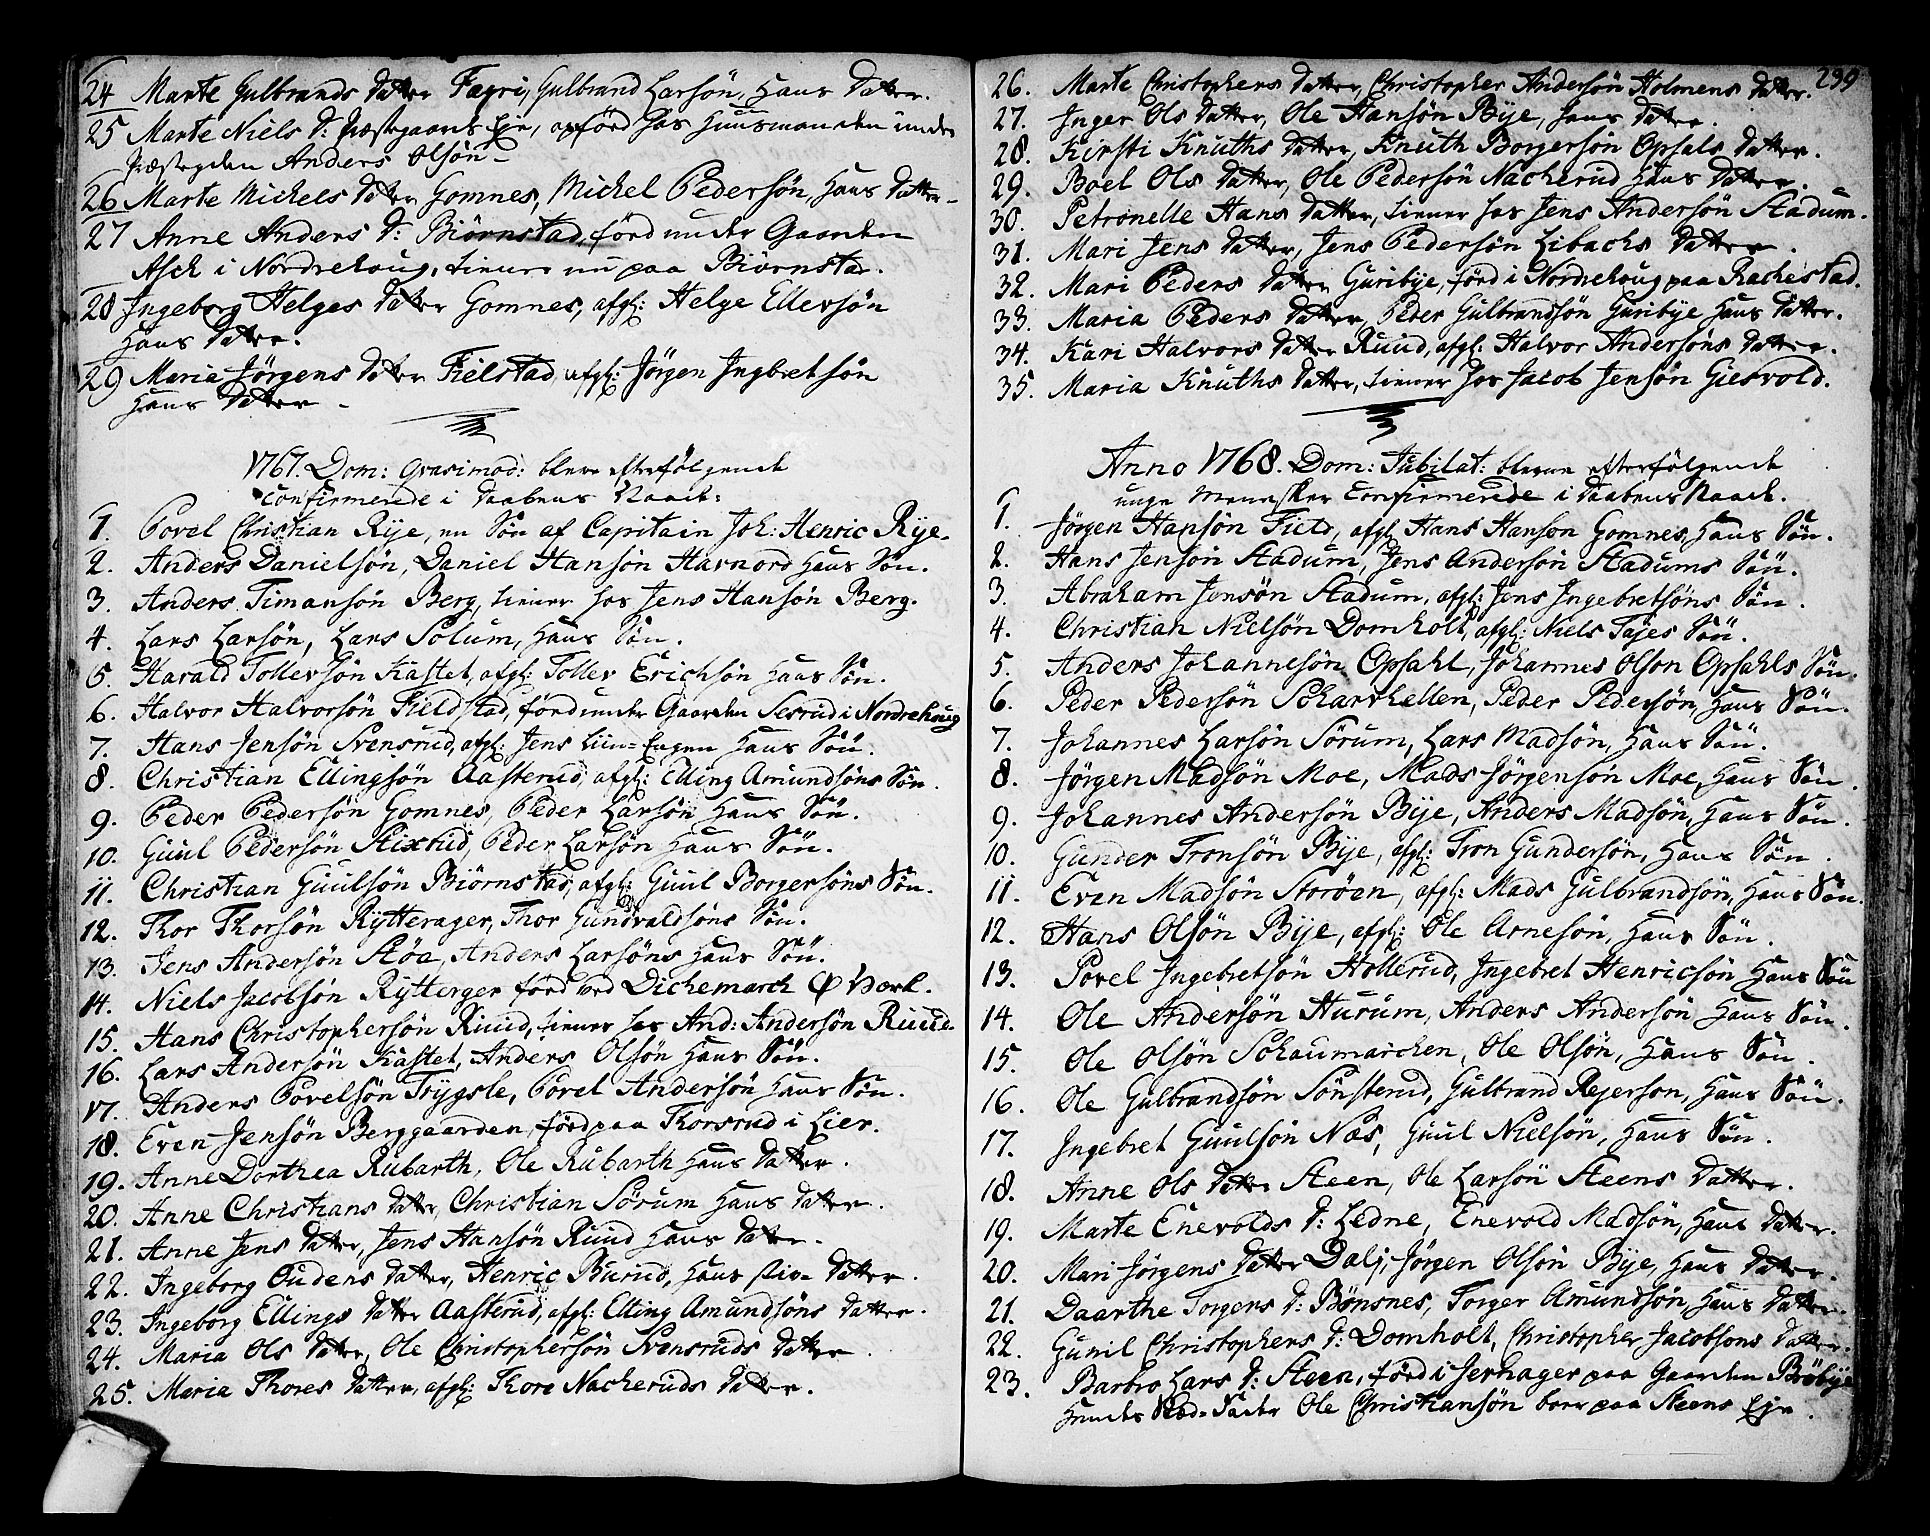 24 Marte Gulbrands Datter Fagri, Gulbrand Larsön, Hans Datter.
25 Marte Niels D: Præstegaards Eje, opförd hos Huusmanden under
Præstegden Anders Olsön
26 Marte Michels Datter Gomnes, Michel Pedersön, Hans Datter
27 Anne Anders D: Biörnstad, förd under Gaarden
Asck i Nordrehoug, tiener nu paa Biörnstad.
28 Ingeborg Helges Datter Gomnes, afgl: Helge Ellersön
Hans Datter.
29 Maria Jörgens Datter Fielstad, afgl: Jörgen Ingbretsön
Hans Datter
1767. Dom: Qvasimod: bleve efterfölgende
Confirmerede i Daabens Naade:
1. Povel Christian Rÿe, en Sön af Capitain Joh: Henric Rÿe.
2. Anders Danielsön, Daniel Hansön Harnord Hans Sön.
3. Anders Timansön Berg, tiener hos Jens Hansön Berg.
4. Lars Larsön, Lars Solum, Hans Sön.
5. Harald Tollersön Kastet, afgl: Toller Erichsön Hans Sön.
6. Halvor Halvorsön Fieldstad, förd under Gaarden Sesrud i Nordrehoug
7. Hans Jensön Svensrud, afgl: Jens Liin=Engen Hans Sön.
8. Christian Ellingsön Aasterud, afgl: Elling Amundsöns Sön.
9. Peder Pedersön Gomnes, Peder Larsön Hans Sön.
10. Guul Pedersön Stixrud, Peder Larsön Hans Sön.
11. Christian Guulsön Biörnstad, afgl: Guul Borgersöns Sön.
12. Thor Thorsön Rÿtterager, Thor Gundvaldsöns Sön.
13. Jens Andersön Stöa, Anders Larsöns Hans Sön.
14. Niels Jacobsön Rÿtterger förd ved Dichemarch
15. Hans Christophersön Ruud, tiener hos And: Andersön Ruud.
16. Lars Andersön Kastet, Anders Olsön Hans Sön.
17. Anders Povelsön Trÿgsle, Povel Andersön Hans Sön.
18. Even Jensön Berggaarden, förd paa Thorsrud i Lier.
19. Anne Dorthea Rubarth, Ole Rubarth Hans Datter.
20. Anne Christians Datter, Christian Sörum Hans Datter.
21. Anne Jens Datter, Jens Hansön Ruud Hans Datter.
22. Ingeborg Oudens Datter, Henric Burud, Hans Stiv= Datter.
23. Ingeborg Ellings Datter Aasterud, afgl: Elling Amundsöns Datter.
24. Maria Ols Datter, Ole Christophersön Svensruds Datter.
25. Maria Thores Datter, afgl: Thore Nacheruds Datter.
239
26. Marte Christophers Datter, Christopher Andersön Holmens Datter.
27. Inger Ols Datter, Ole Hansön Bÿe, Hans Datter.
28. Kirsti Knuths Datter, Knuth Borgersön Opsals Datter.
29. Boel Ols Datter, Ole Pedersön Nacherud Hans Datter.
30. Petronelle Hans Datter, tiener hos Jens Andersön Stadum.
31. Mari Jens Datter, Jens Pedersön Libachs Datter.
32. Mari Peders Datter Guribÿe, förd i Nordrehoug paa Rachestad.
33. Maria Peders Datter, Peder Gulbrandsön Guribÿe Hans Datter.
34. Kari Halvors Datter Ruud, afgl: Halvor Andersöns Datter.
35. Maria Knuths Datter, tiener hos Jacob Jensön Giesvold.
Anno 1768. Dom: Jubilat: bleve efterfölgende
unge Mennesker Confirmerede i Daabens Naade.
1. Jörgen Hansön Field, afgl: Hans Hanson Gomnes, Hans Sön.
2. Hans Jensön Stadum, Jens Andersön Stadums Sön.
3. Abraham Jensön Stadum, afgl: Jens Ingebretsöns Sön.
4. Christian Nielsön Domholt, afgl: Niels Tajes Sön.
5. Anders Johannesön Opsahl, Johannes Olson Opsahls Sön.
6. Peder Pedersön Scharthellen, Peder Pedersön, Hans Sön.
7. Johannes Larsön Sörum, Lars Madsön, Hans Sön.
8. Jörgen Madsön Moe, Mads Jörgensön Moe, Hans Sön.
9. Johannes Andersön Bÿe, Anders Madsön, Hans Sön.
10. Gunder Tronsön Bÿe, afgl: Tron Gundersön, Hans Sön.
11. Even Madsön Storöen, afgl: Mads Gulbrandsön, Hans Sön.
12. Hans Olsön Bÿe, afgl: Ole Arnesön, Hans Sön.
13. Povel Ingebretsön Hollerud, Ingebret Henricsön Hans Sön
14. Ole Andersön Hurum, Anders Andersön Hans Sön.
15. Ole Olsön Schaumarchen, Ole Olsön, Hans Sön.
16. Ole Gulbrandsön Sönsterud, Gulbrand Rejerson, Hans Sön.
17. Ingebret Guulsön Næs, Guul Nielsön, Hans Sön.
18. Anne Ols Datter Steen, Ole Larsön Steens Datter.
19. Marte Enevolds D: Ledne, Enevold Madsön, Hans Datter.
20. Mari Jörgens Datter Dalj, Jörgen Olsön Bÿe, Hans Datter.
21. Daarthe Torgers D: Bönsnes, Torger Amundsön, Hans Datter.
22. Gunil Christophers D: Domholt, Christopher Jacobsons Datter.
23. Barbro Lars D: Steen, förd i Jerhager paa Gaarden Bröbÿe
Hendes Sted=Fader Ole Christiansön boer paa Steens Eje.